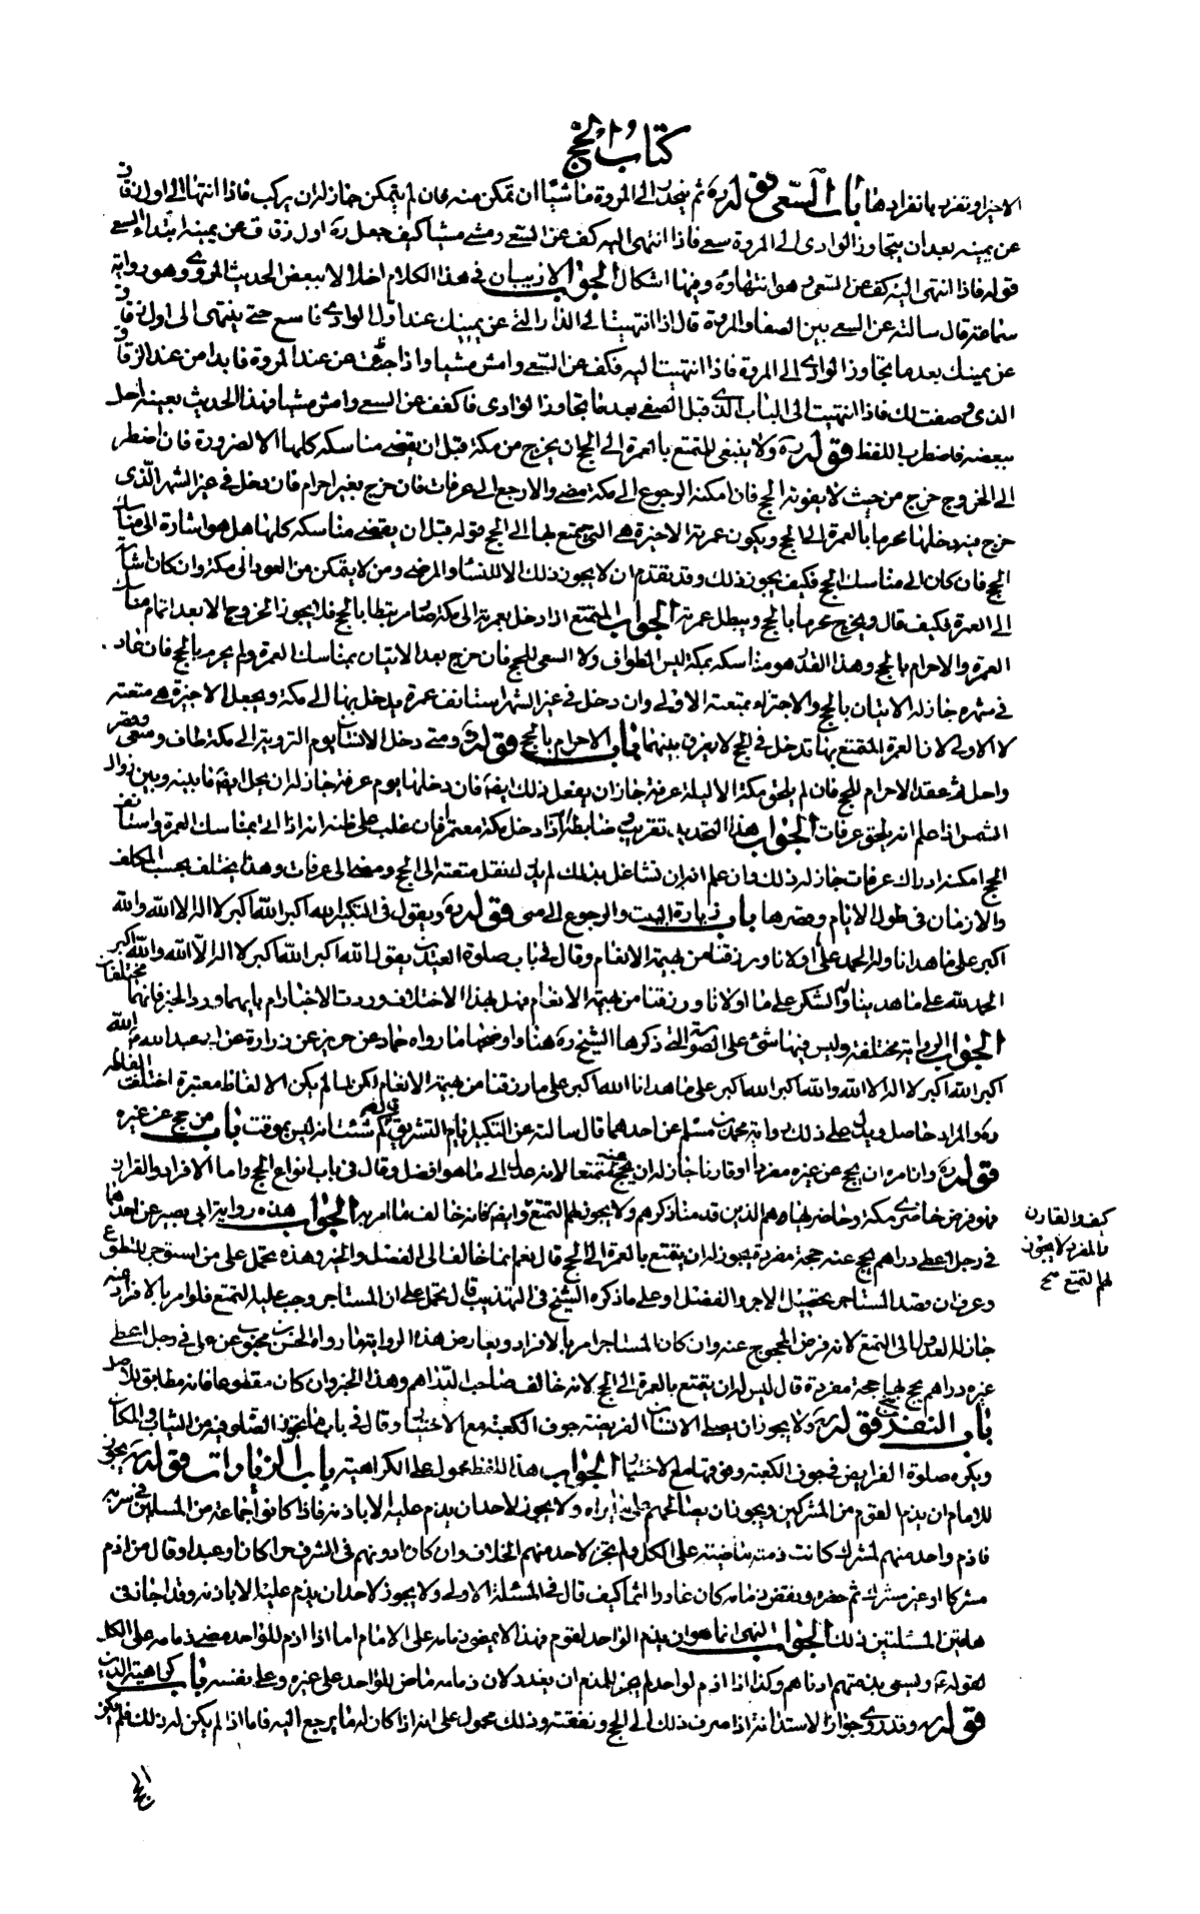 كتاب الحج
الاخير و تفرد بانفرادها باب السعى قوله ره ثم ينحدر الى المروة ماشيا ان تمكن منه فان لم يتمكن جاز له ان يركب فاذا انتها الى اول زقاق
عن يمينه بعد ان يتجاوز الوادى الى المروة سعى فاذا انتهى اليه كف عن السعى ومشى مشيا كيف جعل ره اول زقاق عن يمينه ابتداء السعى
قوله فاذا انتهى اليه كف عن السعى وهو انتهاؤه وفيها اشكال الجواب لا ريب ان فى هذا الكلام اخلالا ببعض الحديث المروى وهو رواية
سماعة قال سالته عن السعى بين الصفا والمروة قال اذا انتهيت الى الدار التى عن يمينك عند اول الوادى فاسع حتى ينتهى الى اول زقاق
عن يمينك بعد ما تجاوز الوادى الى المروة فاذا انتهيت اليه فكف عن السعى وامش مشيا واذا جئت من عند المروة فابدا من عند الزقاق
الذى وصفت لك فاذا انتهيت الى الباب الذى قبل الصفى بعد ما تجاوز الوادى فاكفف عن السعى وامش مشيا فهذا الحديث بعينه اخل
ببعضه فاضطرب اللفظ قوله ره ولا ينبغى للمتمتع بالعمرة الى الحج ان يخرج من مكة قبل ان يقضى مناسكه كلها الا لضرورة فان اضطر
الى الخروج خرج من حيث لا يفوته الحج فان امكنه الرجوع الى مكة مضى والا رجع الى عرفات فان خرج بغير احرام فان دخل فى غير الشهر الذى
خرج فيه دخلها محرما بالعمرة الى الحج ويكون عمرته الاخيرة هى التى يتمتع بها الى الحج قوله قبل ان يقضى مناسكه كلها هل هو اشارة الى مناسك
الحج فان كان الى مناسك الحج فكيف يجوز ذلك وقد تقدم ان لا يجوز ذلك الا للنساء والمرضى ومن لا يتمكن من العود الى مكة وان كان اشارة
الى العمرة فكيف قال ويخرج محرما بالحج ويبطل عمرته الجواب المتمتع اذا دخل بعمرته الى مكة صار مرتبطا بالحج فلا يجوز الخروج الا بعد اتمام مناسك
العمرة والاحرام بالحج وهذا القدر هو مناسكه بمكة ليس الطواف ولا السعى للحج فان خرج بعد الاتيان بمناسك العمرة ولم يحرم بالحج فان عاد
فى شهره جاز له الاتيان بالحج والاجتزاء بمتعته الاولى وان دخل فى غير الشهر استانف عمرة يدخل بها الى مكة ويجعل الاخيرة هى متعته
لا الاولى لان العمرة المتمتع بها تدخل فى الحج لا يفرق بينهما باب الاحرام بالحج قوله ره ومتى دخل الانسان يوم التروية الى مكة طاف وسعى وقصر
واحل ثم عقد الاحرام للحج فان لم يلحق مكة الا ليلة عرفة جاز ان يفعل ذلك ايضا فان دخلها يوم عرفة جاز له ان يحل ايضا ما بينه وبين زوال
الشمس اذا علم انه يلحق عرفات الجواب هذا التحديد تقريب وضابطه اذا دخل مكة معتمرا فان غلب على ظنه انه اذا اتى بمناسك العمرة واستانف
الحج امكنه ادراك عرفات جاز له ذلك وان علم انه ان تشاغل بذلك لم يدرك نقل متعته الى الحج ومضى الى عرفات وهذا يختلف بحسب المكلف
والازمان فى طول الايام وقصرها باب زيارة البيت والرجوع الى منى قوله ره ويقول فى التكبير الله اكبر الله اكبر لا اله الا الله والله
اكبر على ما هدانا وله الحمد على ما اولانا ورزقنا من بهيمة الانعام وقال فى باب صلوة العيدين يقول الله اكبر الله اكبر لا اله الا الله والله اكبر
الحمد لله على ما هدينا وله الشكر على ما اولانا ورزقنا من بهيمة الانعام فهل بهذا الاختلاف وردت الاخبار ام بايهما ورد الخبر فانهما مختلفان
الجواب الرواية مختلفة وليس فيها شئ على الصورة التى ذكرها الشيخ ره هنا واوضحها ما رواه حماد عن حريز عن زرارة عن ابى عبد الله ع الله
اكبر الله اكبر لا اله الا الله والله اكبر الله اكبر على ما هدانا الله اكبر على ما رزقنا من بهيمة الانعام لكن لما لم يكن الالفاظ معتبرة اختلفت الفاظه
ره والمراد حاصل ويدل على ذلك رواية محمد بن مسلم عن احدهما قال سالته عن التكبير ايام التشريق قال كم شئت انه ليس بموقت باب من حج عن غيره
قوله ره وان امره ان يحج عن غيره مفردا او قارنا جاز له ان يحج عنه متمتعا لانه عدل الى ما هو افضل وقال فى باب انواع الحج واما الافراد والقران
فهو فرض حاضرى مكة وحاضريها هم الذين قدمنا ذكرهم ولا يجوز لهم التمتع وايضا كانه خالف ما امر به الجواب هذه رواية ابى بصير عن احدهما
فى رجل اعطى دراهم يحج عنه حجة مفردة يجوز له ان يتمتع بالعمرة الى الحج قال نعم انما خالف الى الفضل والخير وهذه تحمل على من استوجر للتطوع
وعرف ان قصد المستاجر تحصيل الاجر والفضل او على ما ذكره الشيخ فى التهذيب قال تحمل على ان المستاجر وجب عليه التمتع فلو امر بالافراد عنه
جاز له العدول الى التمتع لانه فرض المحجوج عنه وان كان المستاجر امر بالافراد ويعارض هذه الرواية ما رواه الحسن بن محبوب عن على فى رجل اعطى
غيره دراهم يحج بها حجة مفردة قال ليس له ان يتمتع بالعمرة الى الحج لانه خالف صاحب الدراهم وهذا الخبر وان كان مقطوعا فانه مطابق للاصل
باب النفر قوله ره ولا يجوز ان يصلى الانسان الفريضة جوف الكعبة مع الاختيار وقال فى باب ما يجوز الصلوة فيه من الثياب والمكان
ويكره صلوة الفرايض فى جوف الكعبة وفوقها مع الاختيار الجواب هذا اللفظ محمول على الكراهية باب الزيادات قوله ره يجوز
للامام ان يذم القوم من المشركين ويجوز ان يصالحهم على ما يراه ولا يجوز لاحد ان يذم عليه الا باذنه فاذا كانوا جماعة من المسلمين فى سرية
فاذم واحد منهم لمشرك كانت ذمته ماضية على الكل ولم يجز لاحد منهم الخلاف وان كان ادونهم فى الشرف حرا كان او عبدا وقال من اذم
مشركا او غير مشرك ثم حصره ونقض ذمامه كان غادرا اثما كيف قال فى المسئلة الاولى ولا يجوز لاحد ان يذم عليه الا باذنه وقد اجاز فى
هاتين المسئلتين ذلك الجواب النهى انما هو ان يذم الواحد لقوم فهذا لا يمضى ذمامه على الامام اما اذا اذم للواحد مضى ذمامه على الكل
لقوله ع ويسعى بذمتهم ادناهم وكذا اذا اذم لواحد لم يجز للمذم ان يغدر لان ذمامه ماض للواحد على غيره وعلى نفسه باب كراهية الدين
قوله ره وقد روى جواز الاستدانة اذا صرف ذلك الى الحج ونفقته وذلك محمول على انه اذا كان له ما يرجع اليه فاما اذا لم يكن له ذلك فلم يكن
كيف والقارن
والمفرد لا يجوز
لهم التمتع صح
الج